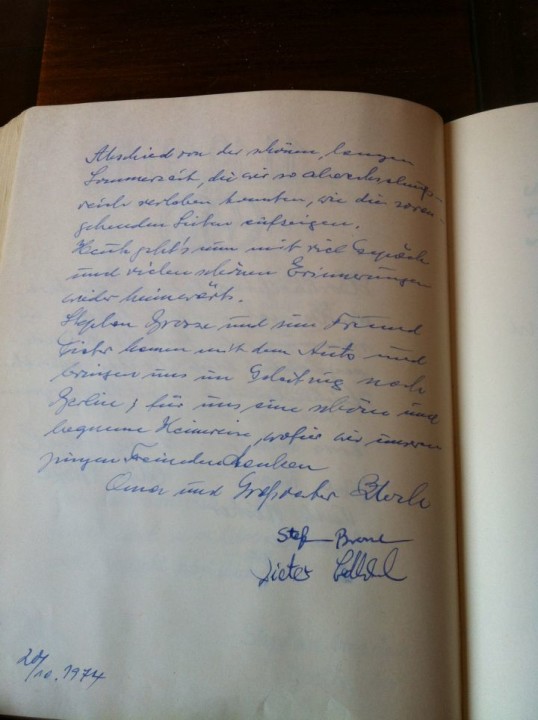 Abschied von der schönen, langen
Sommerzeit, die wir so abwechslungs-
reich verleben konnten, wie die voran-
gehenden Seiten aufzeigen.
Heute geht's nun mit viel Gepäck
und vielen schönen Erinnerungen
wieder heimwärts.
Stephan und sein Freund
Dieter kamen mit dem Auto und
bringen uns im Geleitzug nach
Berlin; für uns eine schöne und
bequeme Heimreise, wofür wir unseren
jungen Freunden danken
Oma und Großvater
Stef
Dieter
20/10.1974